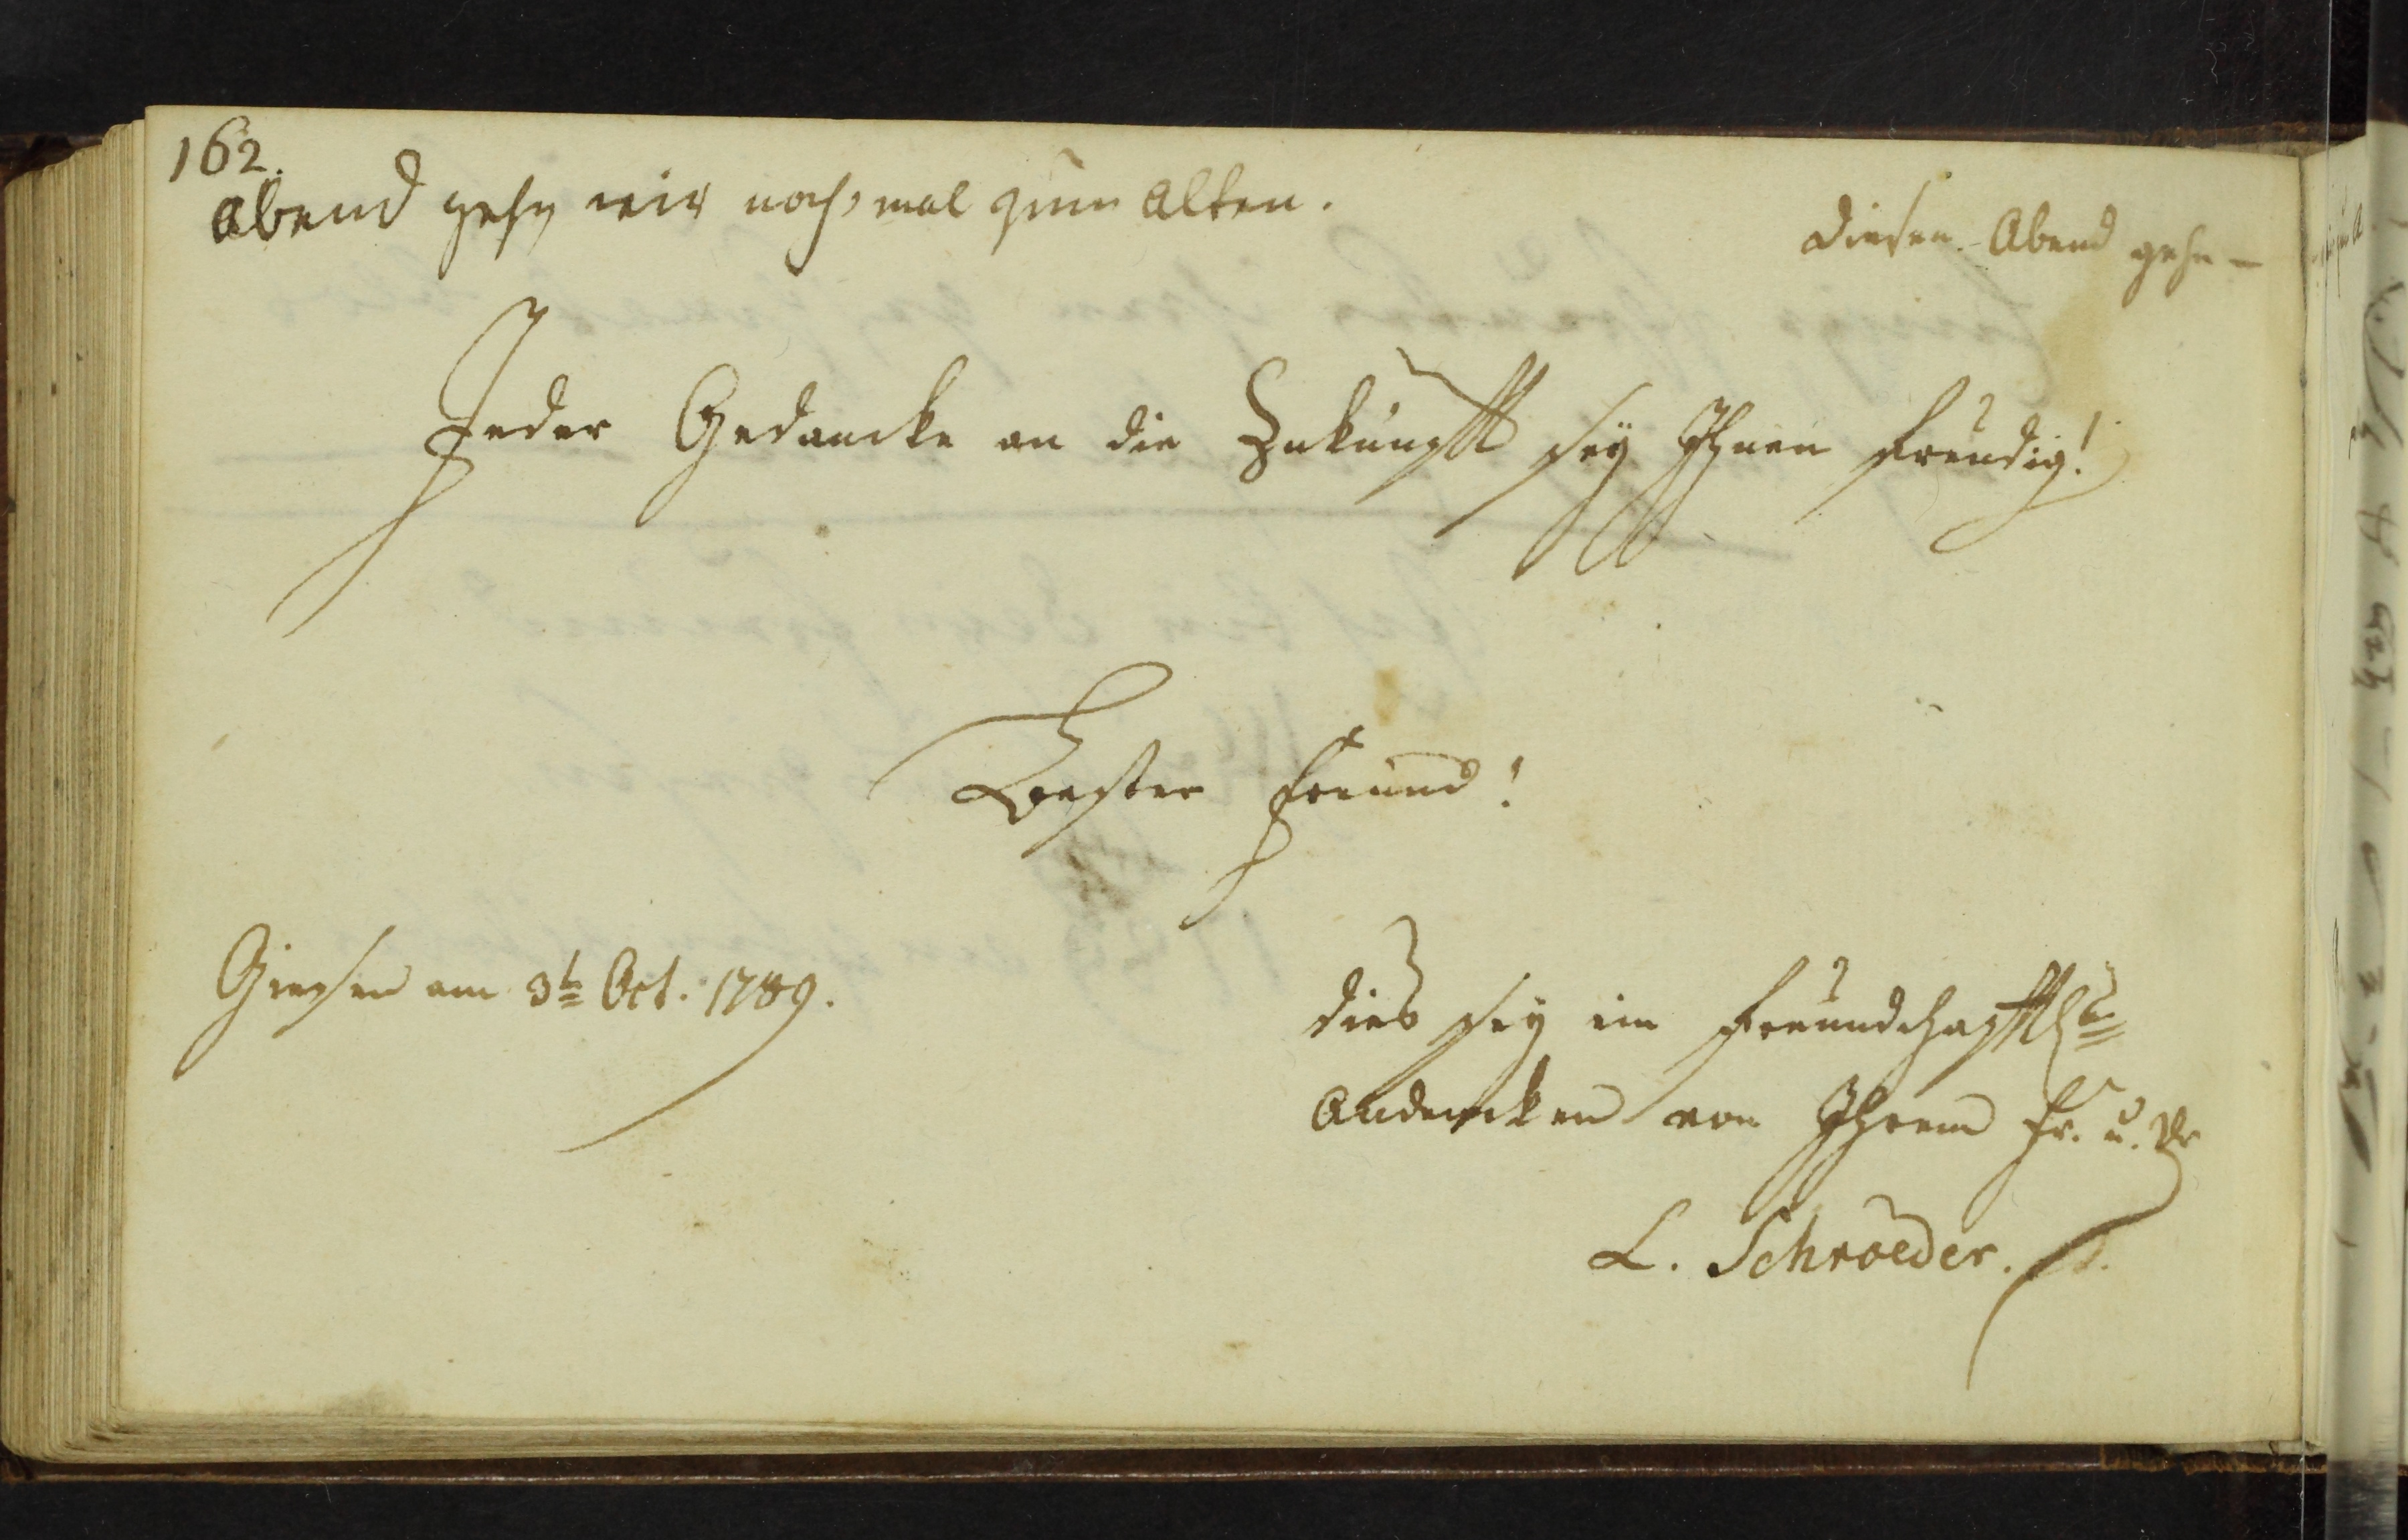 162.
Abend gehn wir noch mal zum Alten.
Diesen Abend gehn –
Jeder Gedancke an die Zukunfft sey Ihnen freudig!
Bester Freund!
Giesen am 3t Oct. 1789.
dies sey ein freundschafftl.
Andencken von Ihrem Fr. u. Br
L. Schröeder.